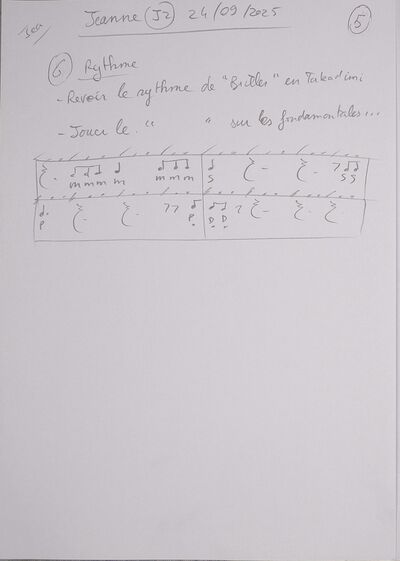 Jea
Jeanne (J2) 24/09/2025
5
6 Rythme
- Revoir le rythme de "Butler" en Takadimi
- Jouer le " " sur les fondamentales...
m m m m m m m S S S
P P D D